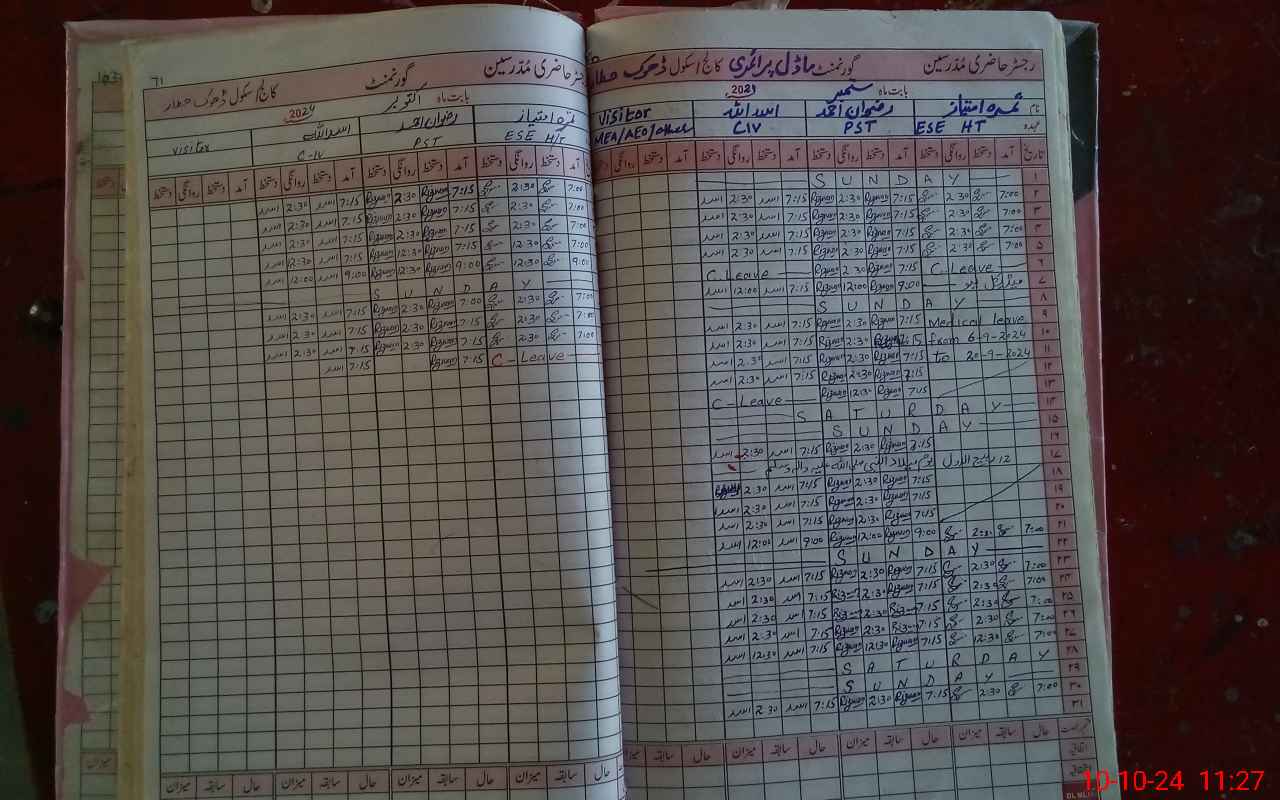 رجسٹر حاضری مُدّرسین گورنمنٹ ماڈل پرائمری کالج/سکول ڈھوک
بابت ماہ ستمبر 2021
نام عہدہ
اسد اللہ رضوان احمد
Visitor
MEA/AEO/other CIV PST ESE HT
تاریخ آمد دستخط روانگی دستخط آمد دستخط روانگی دستخط آمد دستخط روانگی دستخط
۱ SUNDAY
۲ 7:00 2:30 7:15 Rizwan 2:30 Rizwan 7:15 اسد 2:30 اسد
۳ 7:00 2:30 7:15 Rizwan 2:30 Rizwan 7:15 اسد 2:30 اسد
7:00 2:30 7:15 Rizwan 2:30 Rizwan 7:15 اسد 2:30 اسد
۵ 7:00 2:30 7:15 Rizwan 2:30 Rizwan 7:15 اسد 2:30 اسد
۶ C.Leave 7:15 Rizwan 2:30 Rizwan C.Leave
۷ 9:00 Rizwan 12:00 Rizwan 7:15 اسد 12:00 اسد
۸ SUNDAY
۹ Medical leave 7:15 Rizwan 2:30 Rizwan 7:15 اسد 2:30 اسد
۱۰ from 6-9-2024 7:15 Rizwan 2:30 Rizwan 7:15 اسد 2:30 اسد
۱۱ to 20-9-2024 7:15 Rizwan 2:30 Rizwan 7:15 اسد 2:30 اسد
۱۲ 7:15 Rizwan 2:30 Rizwan 7:15 اسد 2:30 اسد
۱۳ 7:15 Rizwan 12:30 Rizwan C-Leave
SATURDAY
۱۵ SUNDAY
۱۶ 7:15 Rizwan 2:30 Rizwan 7:15 اسد 2:30 اسد
۱۷ 12 ربیع الاول
۱۸ 7:15 Rizwan 2:30 Rizwan 7:15 اسد 2:30
۱۹ 7:15 Rizwan 2:30 Rizwan 7:15 اسد 2:30 اسد
۲۰ 7:15 Rizwan 2:30 Rizwan 7:15 اسد 2:30 اسد
۲۱ 7:00 2:30 9:00 Rizwan 12:00 Rizwan 9:00 اسد 12:00 اسد
۲۲ SUNDAY
۲۳ 7:00 2:30 7:15 Rizwan 2:30 Rizwan 7:15 اسد 2:30 اسد
7:00 2:30 7:15 Rizwan 2:30 Rizwan 7:15 اسد 2:30 اسد
۲۵ 7:00 2:30 7:15 2:30 7:15 اسد 2:30 اسد
۲۶ 7:00 2:30 7:15 Rizwan 2:30 Rizwan 7:15 اسد 2:30 اسد
۲۷ 7:00 12:30 7:15 Rizwan 12:30 Rizwan 7:15 اسد 12:30 اسد
۲۸ SATURDAY
۲۹ SUNDAY
۳۰ 7:00 2:30 7:15 Rizwan 2:30 Rizwan 7:15 اسد 2:30 اسد
۳۱
حال سابقہ میزان حال سابقہ میزان حال سابقہ میزان حال سابقہ میزان
اتفاقی
71
رجسٹر حاضری مُدّرسین گورنمنٹ کالج/سکول ڈھوک
بابت ماہ اکتوبر 2024
رضوان احمد اسد اللہ
ESE H/T PST C-IV visitor
آمد دستخط روانگی دستخط آمد دستخط روانگی دستخط آمد دستخط روانگی دستخط آمد دستخط روانگی دستخط
7:00 2:30 7:15 Rizwan 2:30 Rizwan 7:15 اسد 2:30 اسد
7:00 2:30 7:15 Rizwan 2:30 Rizwan 7:15 اسد 2:30 اسد
7:00 2:30 7:15 Rizwan 2:30 Rizwan 7:15 اسد 2:30 اسد
7:00 12:30 7:15 Rizwan 12:30 Rizwan 7:15 اسد 12:30 اسد
9:00 12:30 9:00 Rizwan 12:30 Rizwan 9:00 اسد 12:00 اسد
SUNDAY
7:00 2:30 7:00 Rizwan 2:30 Rizwan 7:15 اسد 2:30 اسد
7:00 2:30 7:15 Rizwan 2:30 Rizwan 7:15 اسد 2:30 اسد
7:00 2:30 7:15 Rizwan 2:30 Rizwan 7:15 اسد 2:30 اسد
C-Leave 7:15 Rizwan 7:15 اسد
حال سابقہ میزان حال سابقہ میزان حال سابقہ میزان حال سابقہ میزان
میزان
10-10-24 11:27